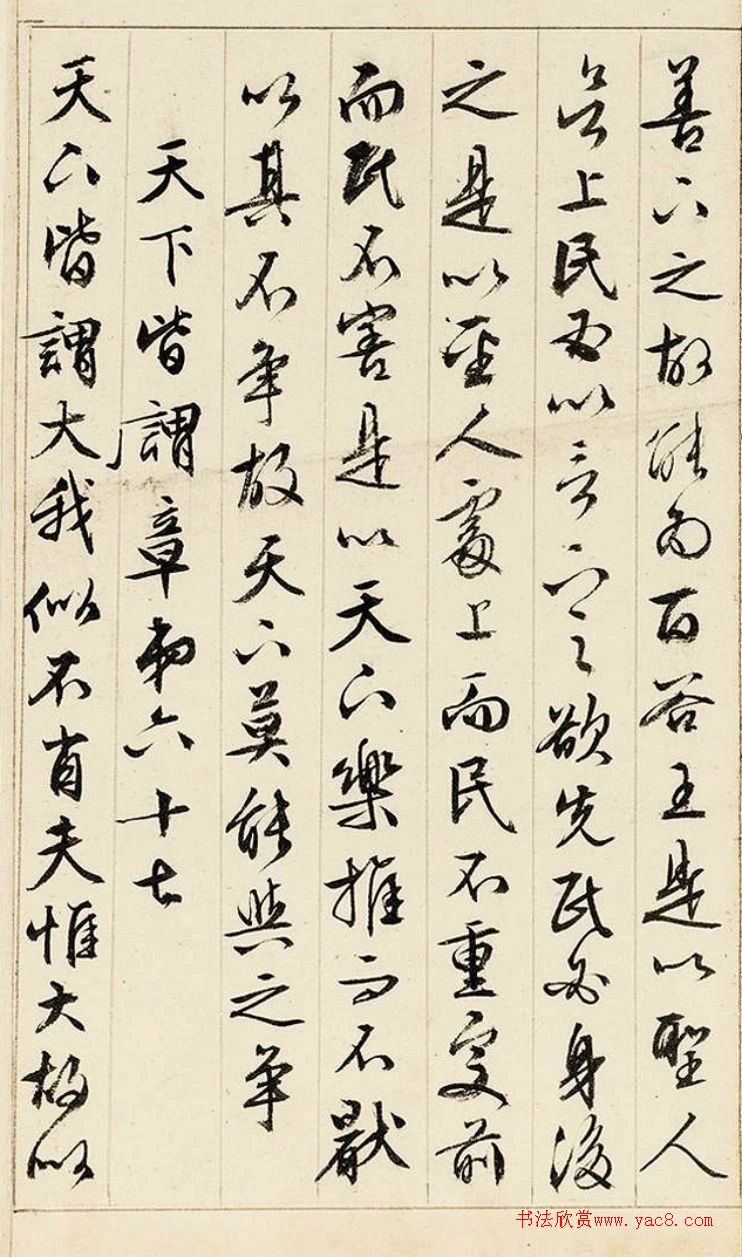 善下之故能為百谷王是以聖人
欲上民必以言下之欲先民必身後
之是以聖人處上而民不重處前
而民不害是以天下樂推而不厭
以其不爭故天下莫能與之爭
天下皆謂章第六十七
天下皆謂大我似不肖夫惟大故似
书法欣赏www.yac8.com